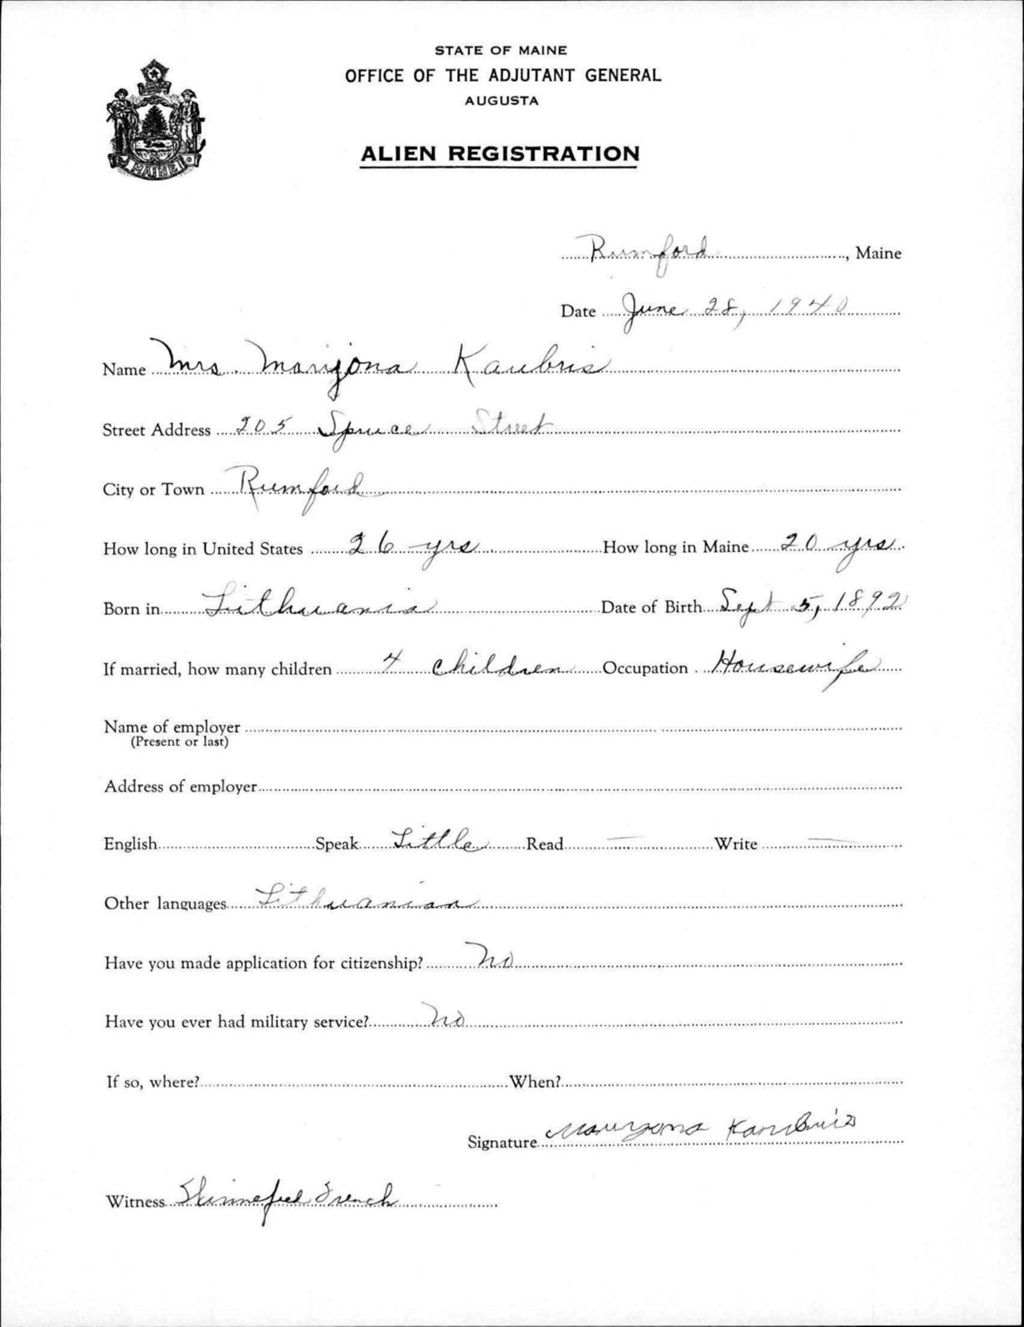 STATE OF MAINE
OFFICE OF THE ADJUTANT GENERAL
AUGUSTA
ALIEN REGISTRATION
MAINE
Rumford, Maine
Date June 28, 1940
Name Mrs. Marijona Kaubris
Street Address 205 Spruce Street
City or Town Rumford
How long in United States 26 yrs. How long in Maine 20 yrs.
Born in Lithuania Date of Birth Sept 5, 1892
If married, how many children 4 children Occupation Housewife
Name of employer
(Present or last)
Address of employer
English Speak Little Read — Write —
Other languages Lithuanian
Have you made application for citizenship? No
Have you ever had military service? No
If so, where? When?
Signature Kaubris
Witness French